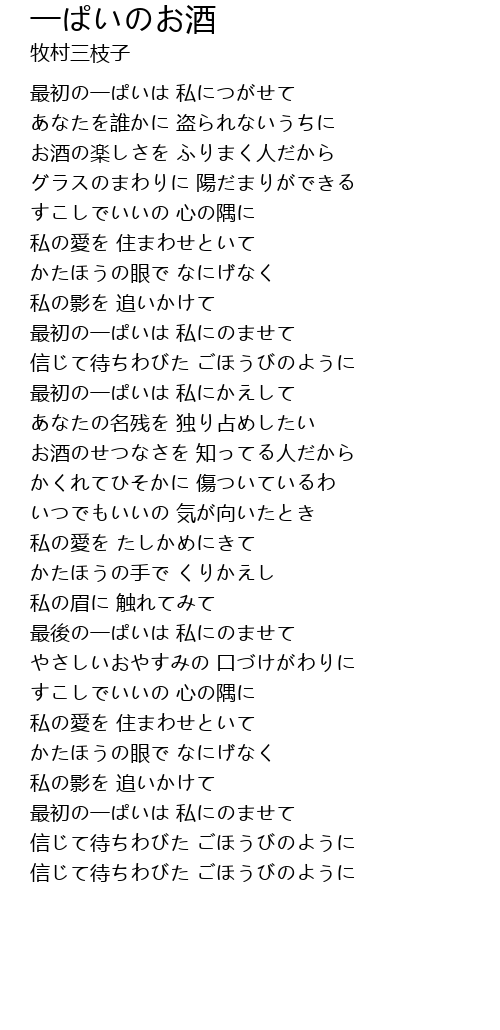 一ぱいのお酒
牧村三枝子
最初の一ぱいは 私につがせて
あなたを誰かに 盗られないうちに
お酒の楽しさを ふりまく人だから
グラスのまわりに 陽だまりができる
すこしでいいの 心の隅に
私の愛を 住まわせといて
かたほうの眼で なにげなく
私の影を 追いかけて
最初の一ぱいは 私にのませて
信じて待ちわびた ごほうびのように
最初の一ぱいは 私にかえして
あなたの名残を 独り占めしたい
お酒のせつなさを 知ってる人だから
かくれてひそかに 傷ついているわ
いつでもいいの 気が向いたとき
私の愛を たしかめにきて
かたほうの手で くりかえし
私の眉に 触れてみて
最後の一ぱいは 私にのませて
やさしいおやすみの 口づけがわりに
すこしでいいの 心の隅に
私の愛を 住まわせといて
かたほうの眼で なにげなく
私の影を 追いかけて
最初の一ぱいは 私にのませて
信じて待ちわびた ごほうびのように
信じて待ちわびた ごほうびのように